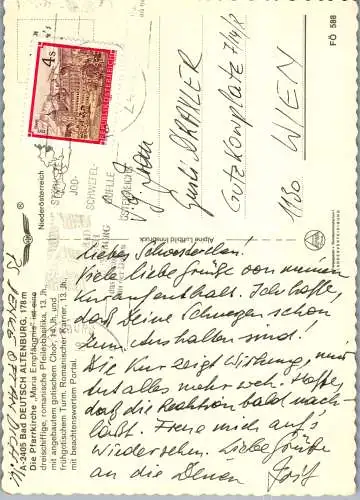 Niederösterreich
A-2405 Bad DEUTSCH ALTENBURG, 178m
Die Pfarrkirche „Maria Empfängnis" ist eine
dreischiffige, romanische Pfeilerbasilika, 13. Jh.,
mit angebautem gotischem Chor, 14. Jh. und
frühgotischem Turm. Romanischer Karner, 13. Jh.
mit beachtenswertem Portal.
Alpine Luftbild Innsbruck
FÖ 588
4 S
REPUBLIK ÖSTERREICH
JOD-
SCHWEFEL-
QUELLE
Frau
Gusti
Gutzkowplatz 7/14/8
1130 WIEN
Liebes
Viele liebe Grüße von meinem
Kuraufenthalt. Ich hoffe,
daß Deine Schmerzen schon
zum Aushalten sind!
Die Kur zeigt Wirkung, mir
tut alles mehr weh. Hoffe,
daß die Reaktion bald nach-
läßt. Freue mich aufs
Wiedersehen. Liebe Grüße
an die Deinen